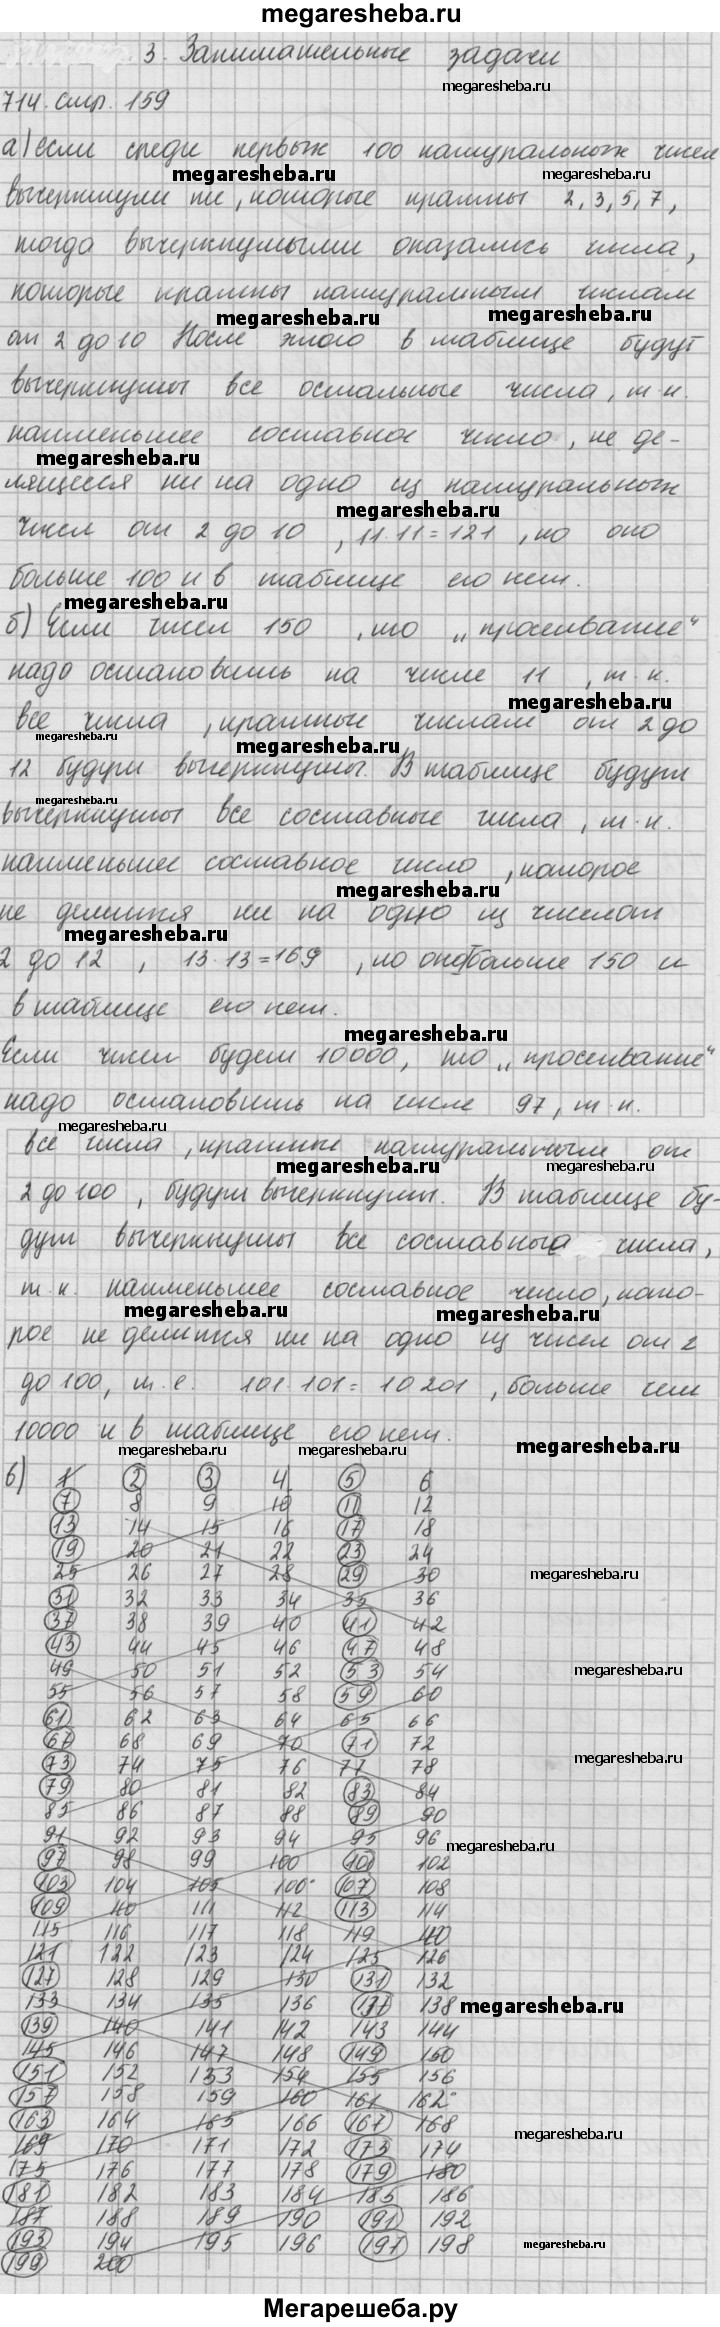 megaresheba.ru
3. Занимательные задачи
megaresheba.ru
714. стр. 159
а) если среди первых 100 натуральных чисел
megaresheba.ru megaresheba.ru
вычеркнули те, которые кратны 2, 3, 5, 7,
тогда вычеркнутыми оказались числа,
которые кратны натуральным числам
megaresheba.ru megaresheba.ru
от 2 до 10 После этого в таблице будут
вычеркнуты все остальные числа, т.к.
наименьшее составное число, не де-
megaresheba.ru
лящееся ни на одно из натуральных
megaresheba.ru
чисел от 2 до 10, 11·11=121, но оно
больше 100 и в таблице его нет.
megaresheba.ru
б) Если чисел 150, то „просеивание“
надо остановить на числе 11, т.к.
megaresheba.ru
все числа, кратные числам от 2 до
megaresheba.ru megaresheba.ru
12 будут вычеркнуты. В таблице будут
megaresheba.ru
вычеркнуты все составные числа, т.к.
наименьшее составное число, которое
megaresheba.ru
не делится ни на одно из чисел от
megaresheba.ru
2 до 12, 13·13=169, но оно больше 150 и
в таблице его нет.
megaresheba.ru
Если чисел будет 10000, то „просеивание“
надо остановить на числе 97, т.к.
megaresheba.ru
все числа, кратные натуральным от
megaresheba.ru megaresheba.ru
2 до 100, будут вычеркнуты. В таблице бу-
дут вычеркнуты все составные числа,
т.к. наименьшее составное число, кото-
megaresheba.ru megaresheba.ru
рое не делится ни на одно из чисел от 2
до 100, т.е. 101·101=10201, больше чем
10000 и в таблице его нет.
megaresheba.ru megaresheba.ru megaresheba.ru
в) 1 2 3 4 5 6
7 8 9 10 11 12
13 14 15 16 17 18
19 20 21 22 23 24
25 26 27 28 29 30
megaresheba.ru
31 32 33 34 35 36
37 38 39 40 41 42
43 44 45 46 47 48
49 50 51 52 53 54
megaresheba.ru
55 56 57 58 59 60
61 62 63 64 65 66
67 68 69 70 71 72
73 74 75 76 77 78
megaresheba.ru
79 80 81 82 83 84
85 86 87 88 89 90
91 92 93 94 95 96
megaresheba.ru
97 98 99 100 101 102
103 104 105 106 107 108
109 110 111 112 113 114
115 116 117 118 119 120
121 122 123 124 125 126
127 128 129 130 131 132
133 134 135 136 137 138
megaresheba.ru
139 140 141 142 143 144
145 146 147 148 149 150
151 152 153 154 155 156
157 158 159 160 161 162
163 164 165 166 167 168
megaresheba.ru
169 170 171 172 173 174
175 176 177 178 179 180
181 182 183 184 185 186
187 188 189 190 191 192
193 194 195 196 197 198
megaresheba.ru
199 200
Мегарешеба.ру